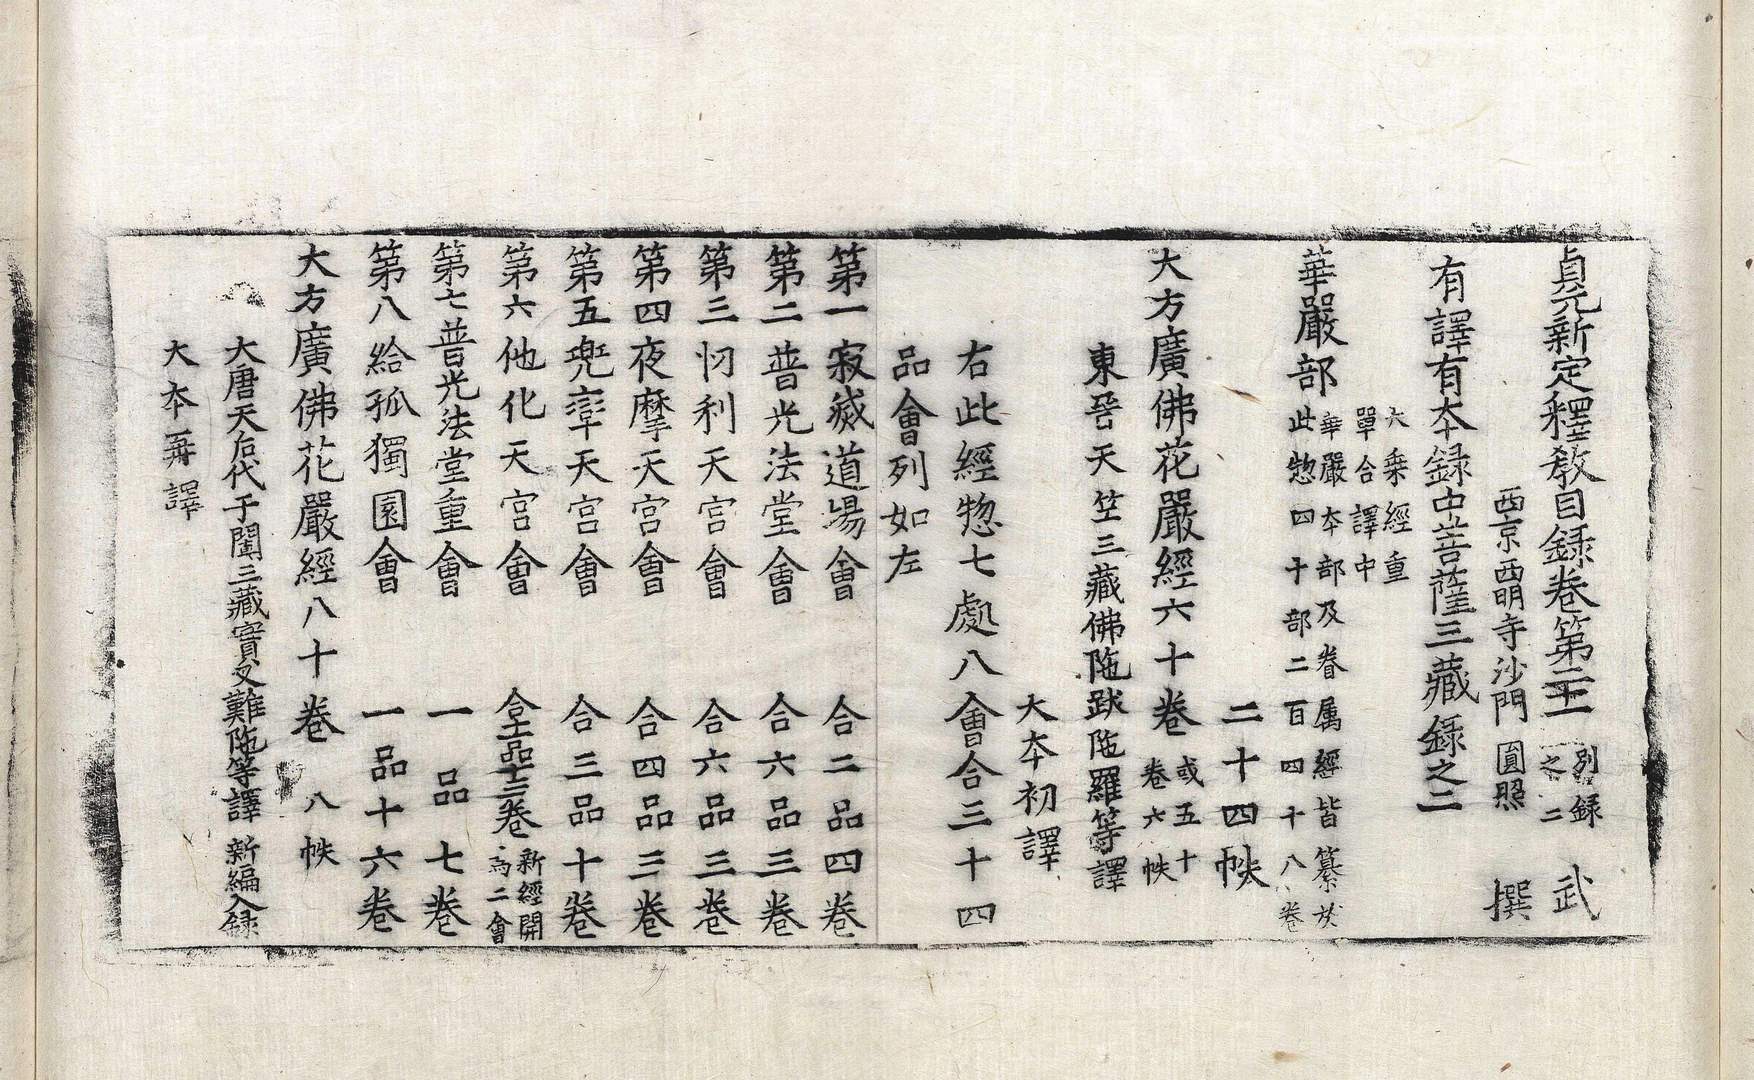 貞元新定釋教目錄卷第二十一 別錄之二 武
西京西明寺沙門 圓照 撰
有譯有本錄中菩薩三藏錄之二
大乘經重單合譯中
華嚴部 華嚴本部及眷属經皆纂於此惣四十部二百四十八卷
二十四帙
大方廣佛花嚴經六十卷 或五十卷六帙
東晉天竺三藏佛陁跋陁羅等譯
大本初譯
右此經惣七處八會合三十四
品會列如左
第一寂滅道場會 合二品四卷
第二普光法堂會 合六品三卷
第三忉利天宫會 合六品三卷
第四夜摩天宫會 合四品三卷
第五兜率天宫會 合三品十卷
第六他化天宫會 合十一品十三卷 新經開為二會
第七普光法堂重會 一品七卷
第八給孤獨園會 一品十六卷
大方廣佛花嚴經八十卷 八帙
大唐天后代于闐三藏實叉難陁等譯 新編入録
大本再譯